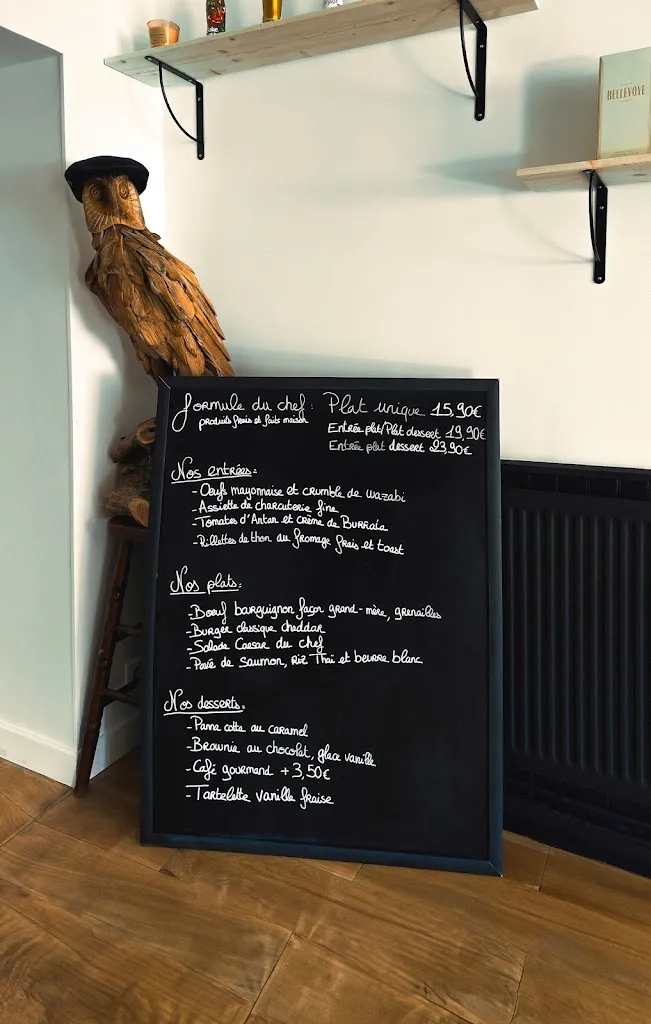 Formule du chef: Plat unique 15,90€
produits frais et faits maison
Entrée plat/Plat dessert 19,90€
Entrée plat dessert 23,90€
Nos entrées:
- Oeufs mayonnaise et crumble de wazabi
- Assiette de charcuterie fine
- Tomates d'Antan et crème de Burrata
- Rillettes de thon au fromage frais et toast
Nos plats:
- Boeuf bourguignon façon grand-mère, grenailles
- Burger classique cheddar
- Salade Caesar du chef
- Pavé de Saumon, Riz Thaï et beurre blanc
Nos desserts:
- Panna cotta au caramel
- Brownie au chocolat, glace vanille
- Café gourmand +3,50€
- Tartelette vanille fraise
BELLEVOYE